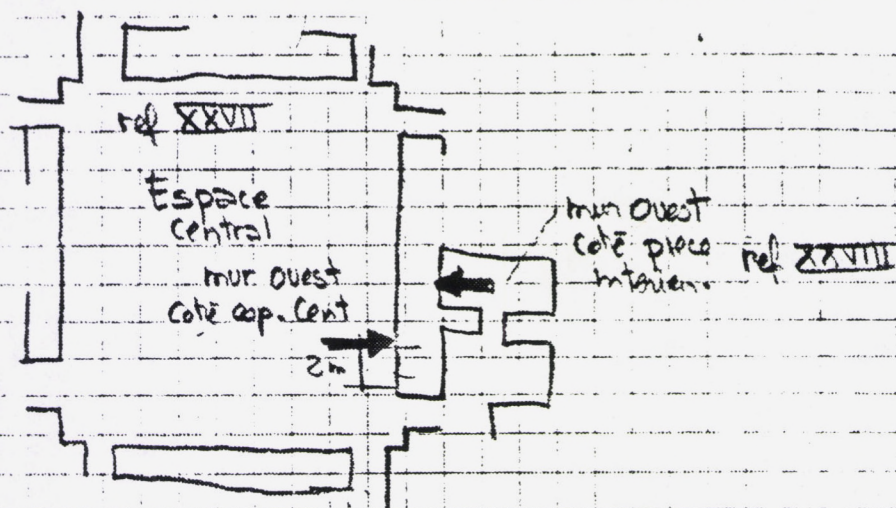 ref XXVII
Espace
Central
mur ouest
coté esp. Cent
2m
mur ouest
coté piece
interieu.
ref XXVIII